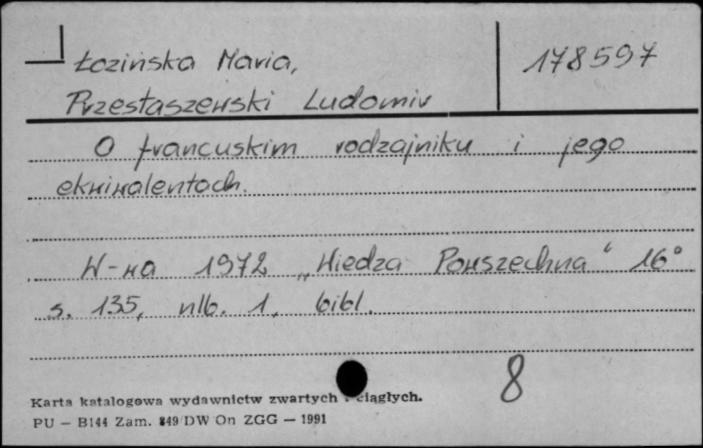 Łozińska Maria, 178597
Przestaszewski Ludomir
O francuskim rodzajniku i jego
ekwiwalentach.
W-wa 1972 „Wiedza Powszechna“ 16°
s. 135, nlb. 1, bibl.
8
Karta katalogowa wydawnictw zwartych i ciągłych.
PU — B144 Zam. 849 DW On ZGG — 1991